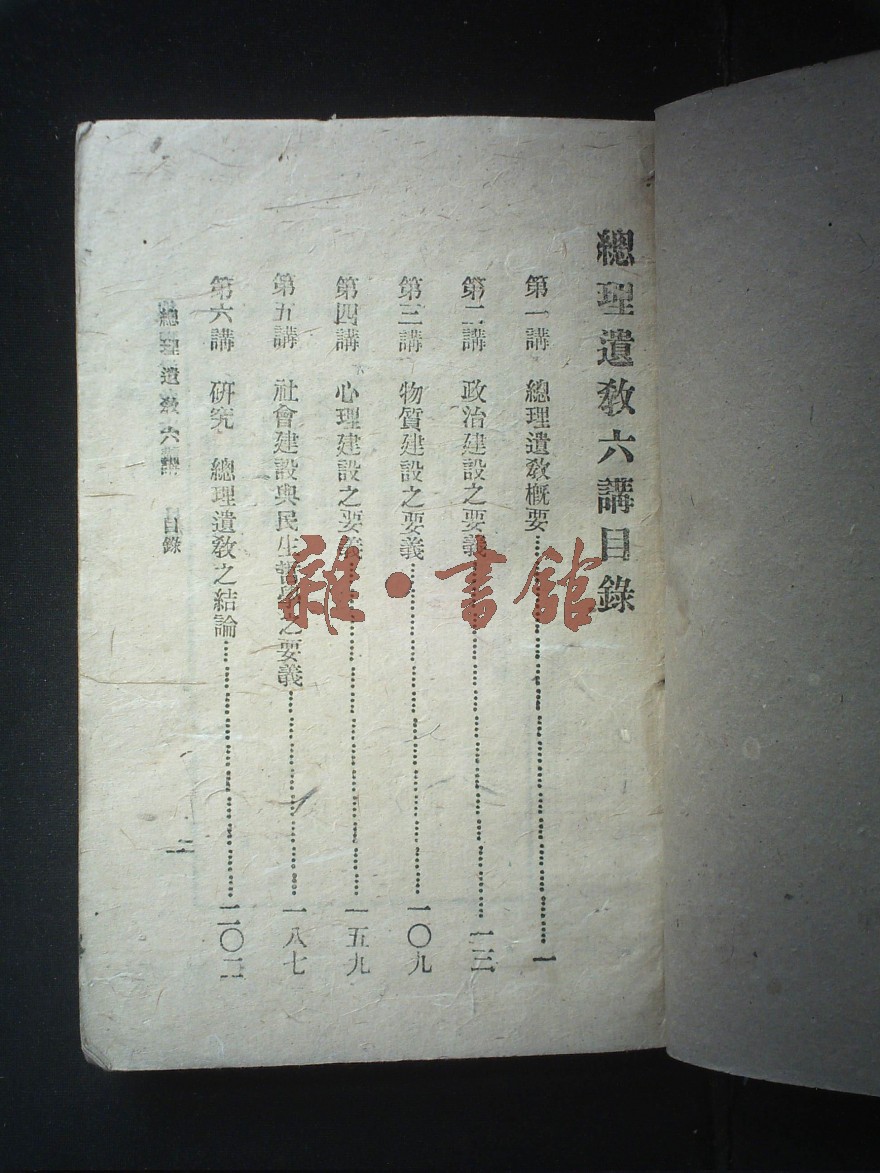 總理遺教六講目錄
第一講 總理遺教概要……一
第二講 政治建設之要義……一三
第三講 物質建設之要義……一〇九
第四講 心理建設之要義……一五九
第五講 社會建設與民生哲學之要義……一八七
第六講 研究 總理遺教之結論……二〇二
總理遺教六講 目錄
雜·書館